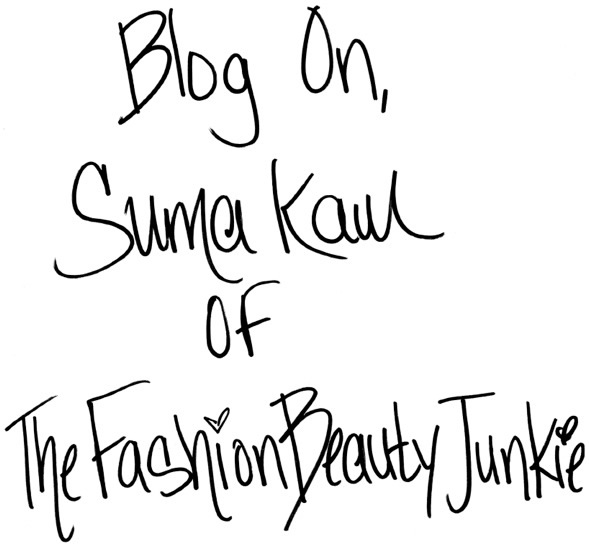 Blog On,
Suma Kaul
OF
The Fashion Beauty Junkie